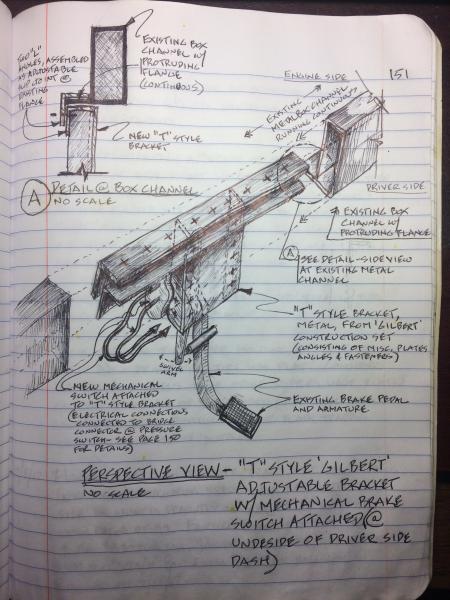 TWO "L"
ANGLES, ASSEMBLED
AS ADJUSTABLE
SLIP JOINT @
EXISTING
FLANGE
EXISTING BOX
CHANNEL W/
PROTRUDING
FLANGE
(CONTINUOUS)
NEW "T" STYLE
BRACKET
A
DETAIL @ BOX CHANNEL
NO SCALE
ENGINE SIDE
151
EXISTING
METAL BOX CHANNEL
RUNNING CONTINUOUS
DRIVER SIDE
EXISTING BOX
CHANNEL W/
PROTRUDING FLANGE
A
SEE DETAIL-SIDE VIEW
AT EXISTING METAL
CHANNEL
"T" STYLE BRACKET,
METAL, FROM 'GILBERT'
CONSTRUCTION SET
(CONSISTING OF MISC. PLATES
ANGLES & FASTENERS)
SWIVEL
ARM
EXISTING BRAKE PEDAL
AND ARMATURE
NEW MECHANICAL
SWITCH ATTACHED
TO "T" STYLE BRACKET
(ELECTRICAL CONNECTIONS
CONNECTED TO BRIDGE
CONNECTOR @ PRESSURE
SWITCH- SEE PAGE 150
FOR DETAILS)
PERSPECTIVE VIEW - "T" STYLE 'GILBERT'
NO SCALE
ADJUSTABLE BRACKET
W/ MECHANICAL BRAKE
SWITCH ATTACHED (@
UNDESIDE OF DRIVER SIDE
DASH)